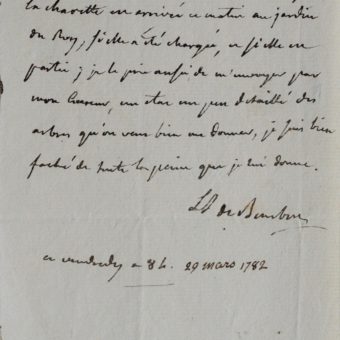 la charette en arrivée ce matin au jardin
du Roy, si elle a été chargée, ou si elle en
partie; je le prie aussi de m'envoyer par
mon cureur, un état un peu détaillé des
arbres qu'on veut bien me donner, je suis bien
faché de toute la peine que je lui donne.
ce vendredy a 8 h. 29 mars 1782